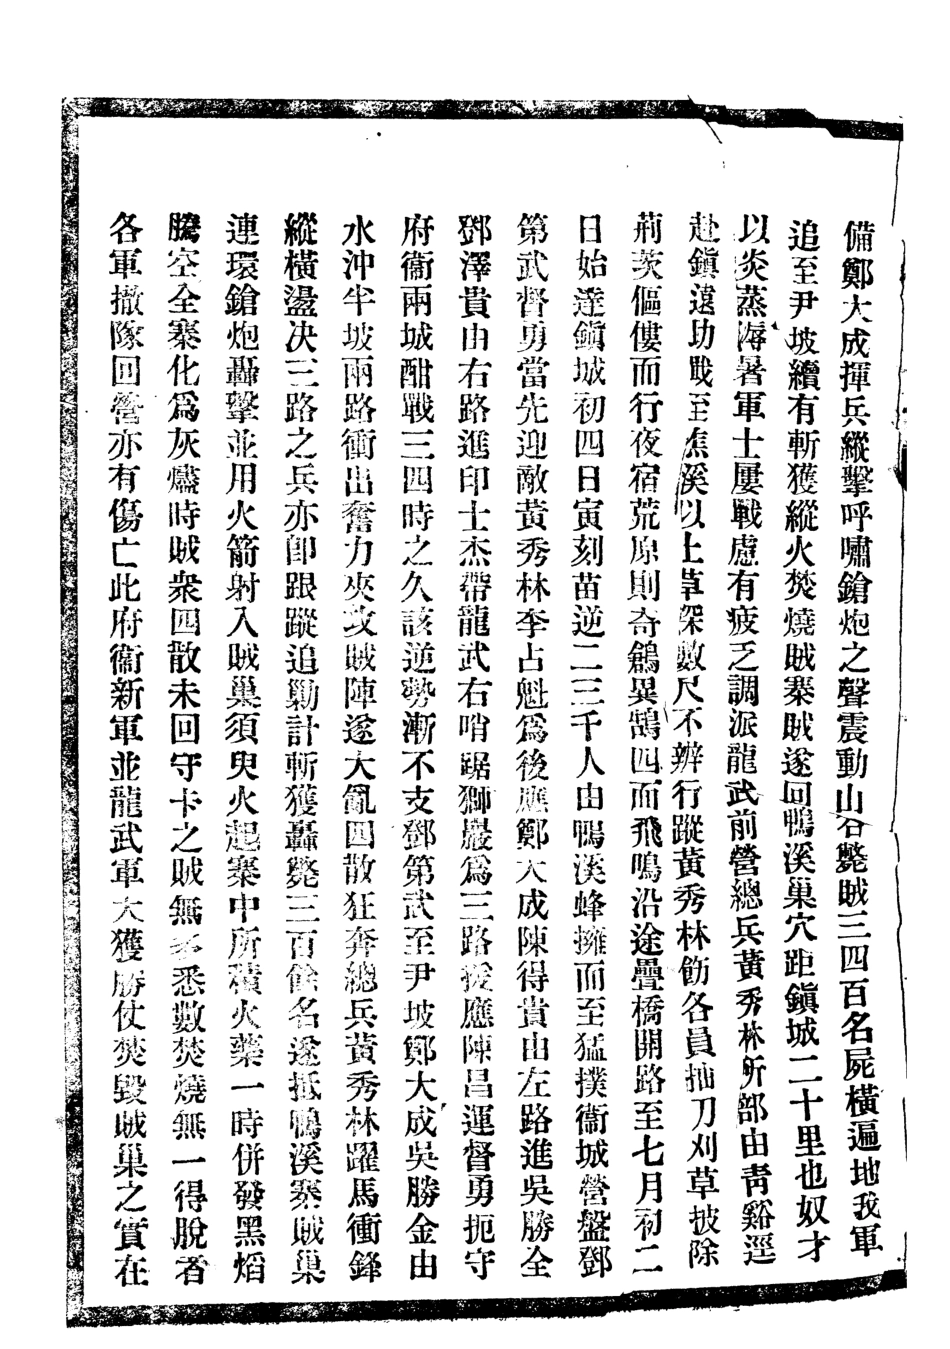 備鄭大成揮兵縱擊呼嘯鎗炮之聲震動山谷斃賊三四百名屍橫遍地我軍
追至尹坡續有斬獲縱火焚燒賊寨賊遂回鴨溪巢穴距鎭城二十里也奴才
以炎蒸溽暑軍士屢戰慮有疲乏調派龍武前營總兵黃秀林所部由靑谿逕
赴鎭遠助戰至焦溪以上草深數尺不辨行蹤黃秀林飭各員抽刀刈草披除
荊茨傴僂而行夜宿荒原則奇鶬異鵠四面飛鳴沿途疊橋開路至七月初二
日始達鎭城初四日寅刻苗逆二三千人由鴨溪蜂擁而至猛撲衞城營盤鄧
第武督勇當先迎敵黃秀林李占魁爲後應鄭大成陳得貴由左路進吳勝全
鄧澤貴由右路進印士杰帶龍武右哨踞獅巖爲三路援應陳昌運督勇扼守
府衞兩城酣戰三四時之久該逆勢漸不支鄧第武至尹坡鄭大成吳勝金由
水沖半坡兩路衝出奮力夾攻賊陣遂大亂四散狂奔總兵黃秀林躍馬衝鋒
縱橫盪决三路之兵亦卽跟蹤追勦計斬獲轟斃三百餘名遂抵鴨溪寨賊巢
連環鎗炮轟擊並用火箭射入賊巢須臾火起寨中所積火藥一時併發黑焰
騰空全寨化爲灰燼時賊衆四散未回守卡之賊無多悉數焚燒無一得脫者
各軍撤隊回營亦有傷亡此府衞新軍並龍武軍大獲勝仗焚毀賊巢之實在